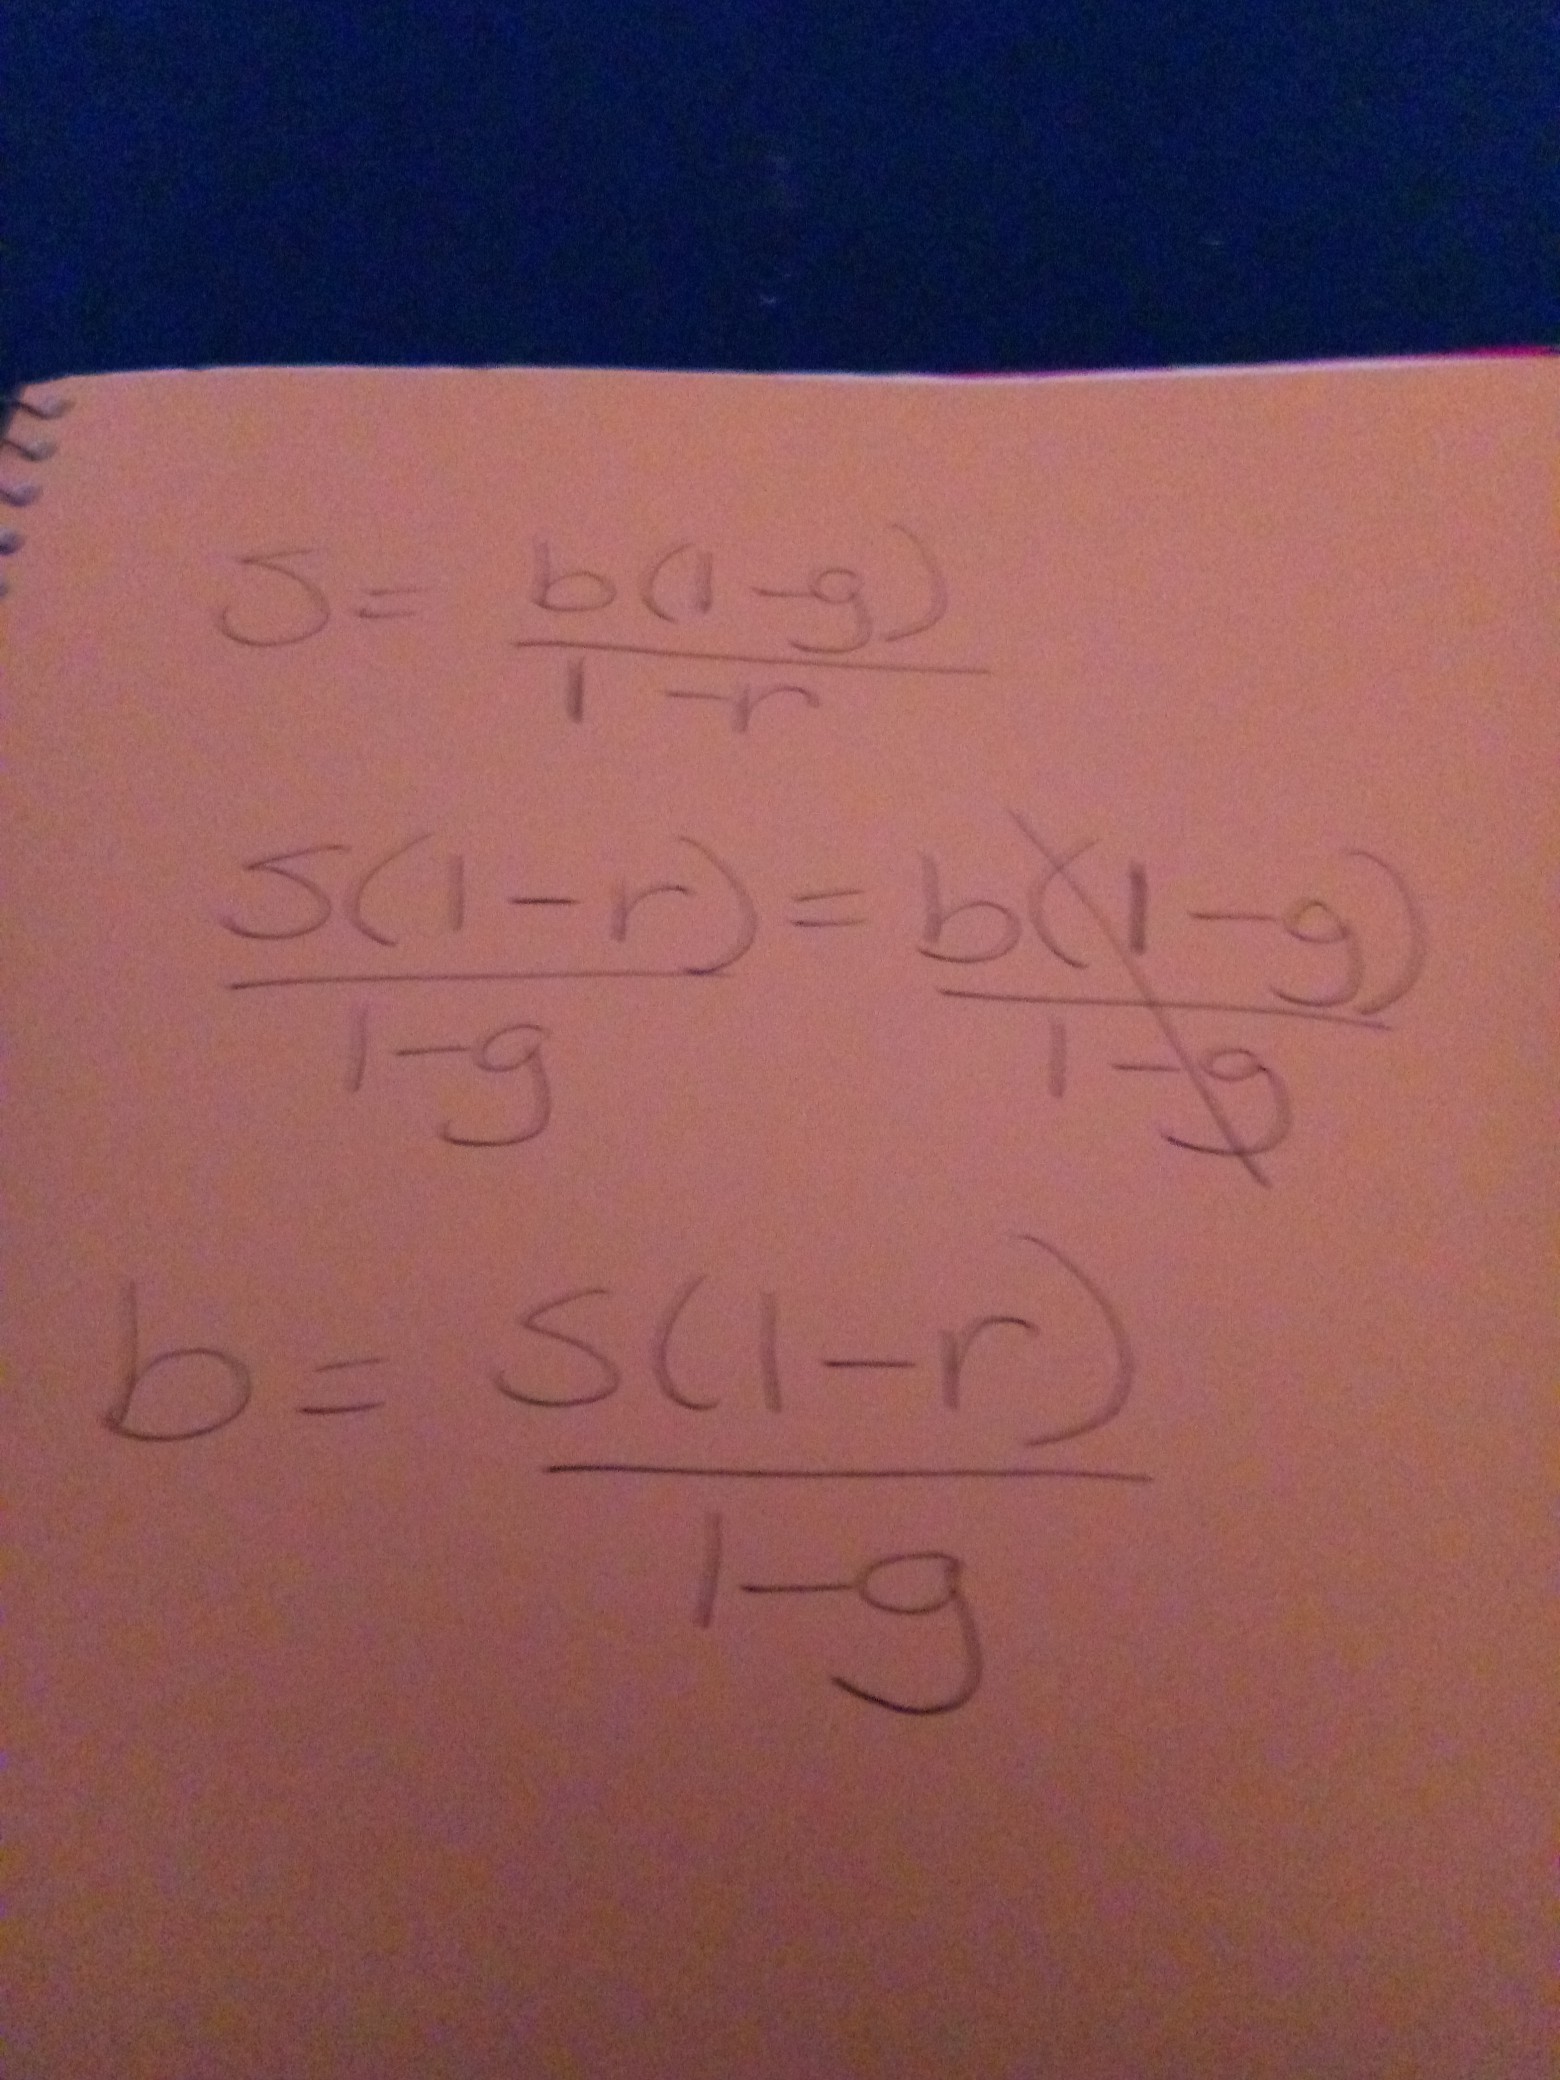 S = b(1-g)
1-r
S(1-r) = b(1-g)
1-g 1-g
b = S(1-r)
1-g